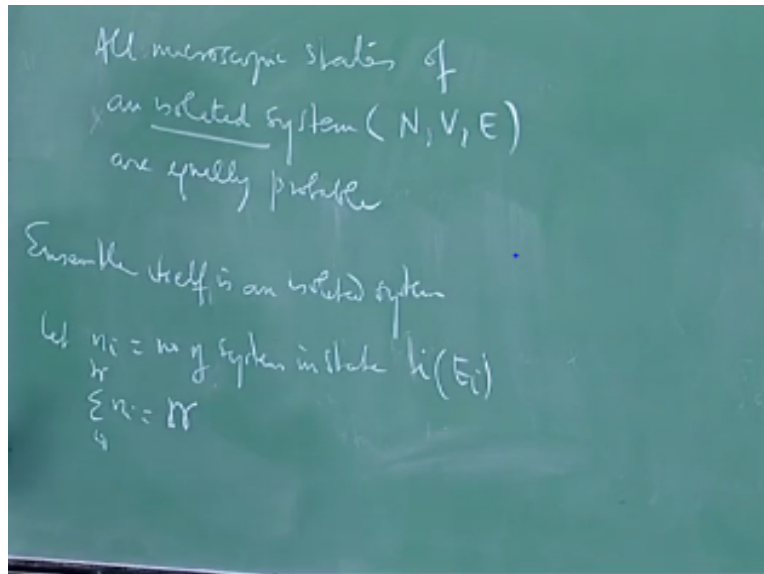 All microscopic states of
an isolated system (N, V, E)
are equally probable
Ensemble itself is an isolated system
let nᵢ = no of system in state i (Eᵢ)
Σ nᵢ = N